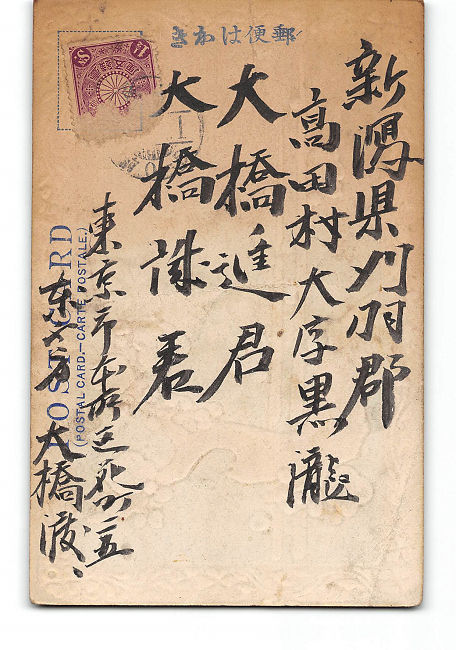 郵便はかき
新潟県刈羽郡
高田村大字黒瀧
大橋進君
大橋誠君
東京市本所区
東方
大橋渡
POST CARD
(POSTAL CARD—CARTE POSTALE.)